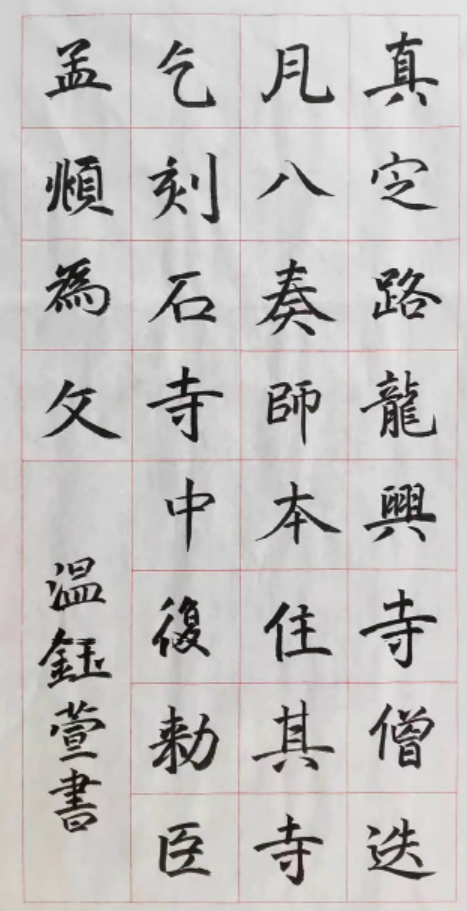 真定路龍興寺僧迭
凡八奏師本住其寺
乞刻石寺中復勅臣
孟頫為文
溫鈺萱書